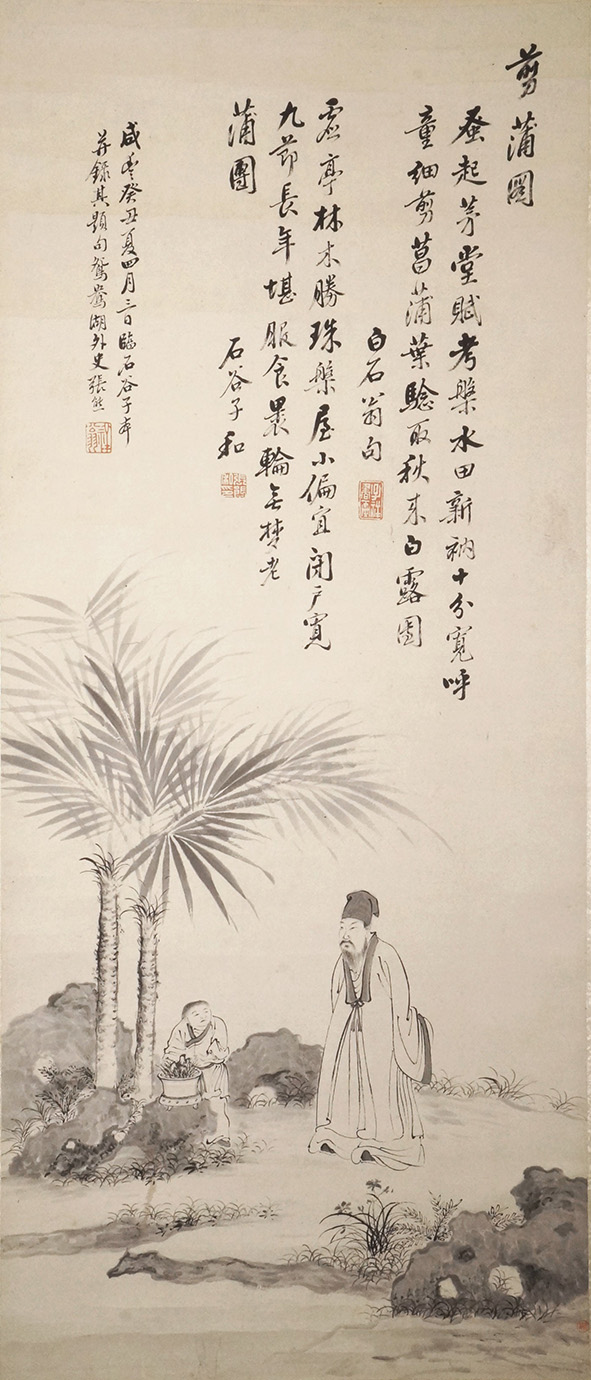 剪蒲圖
蚤起茅堂賦考槃水田新衲十分寬呼
童細剪菖蒲葉驗取秋來白露團
白石翁句
虛亭林木勝珠槃屋小偏宜閉戶寬
九節長年堪服食輪無老
蒲團
石谷子和
咸豐癸丑夏四月三日臨石谷子本
并錄其題句鴛鴦湖外史張熊